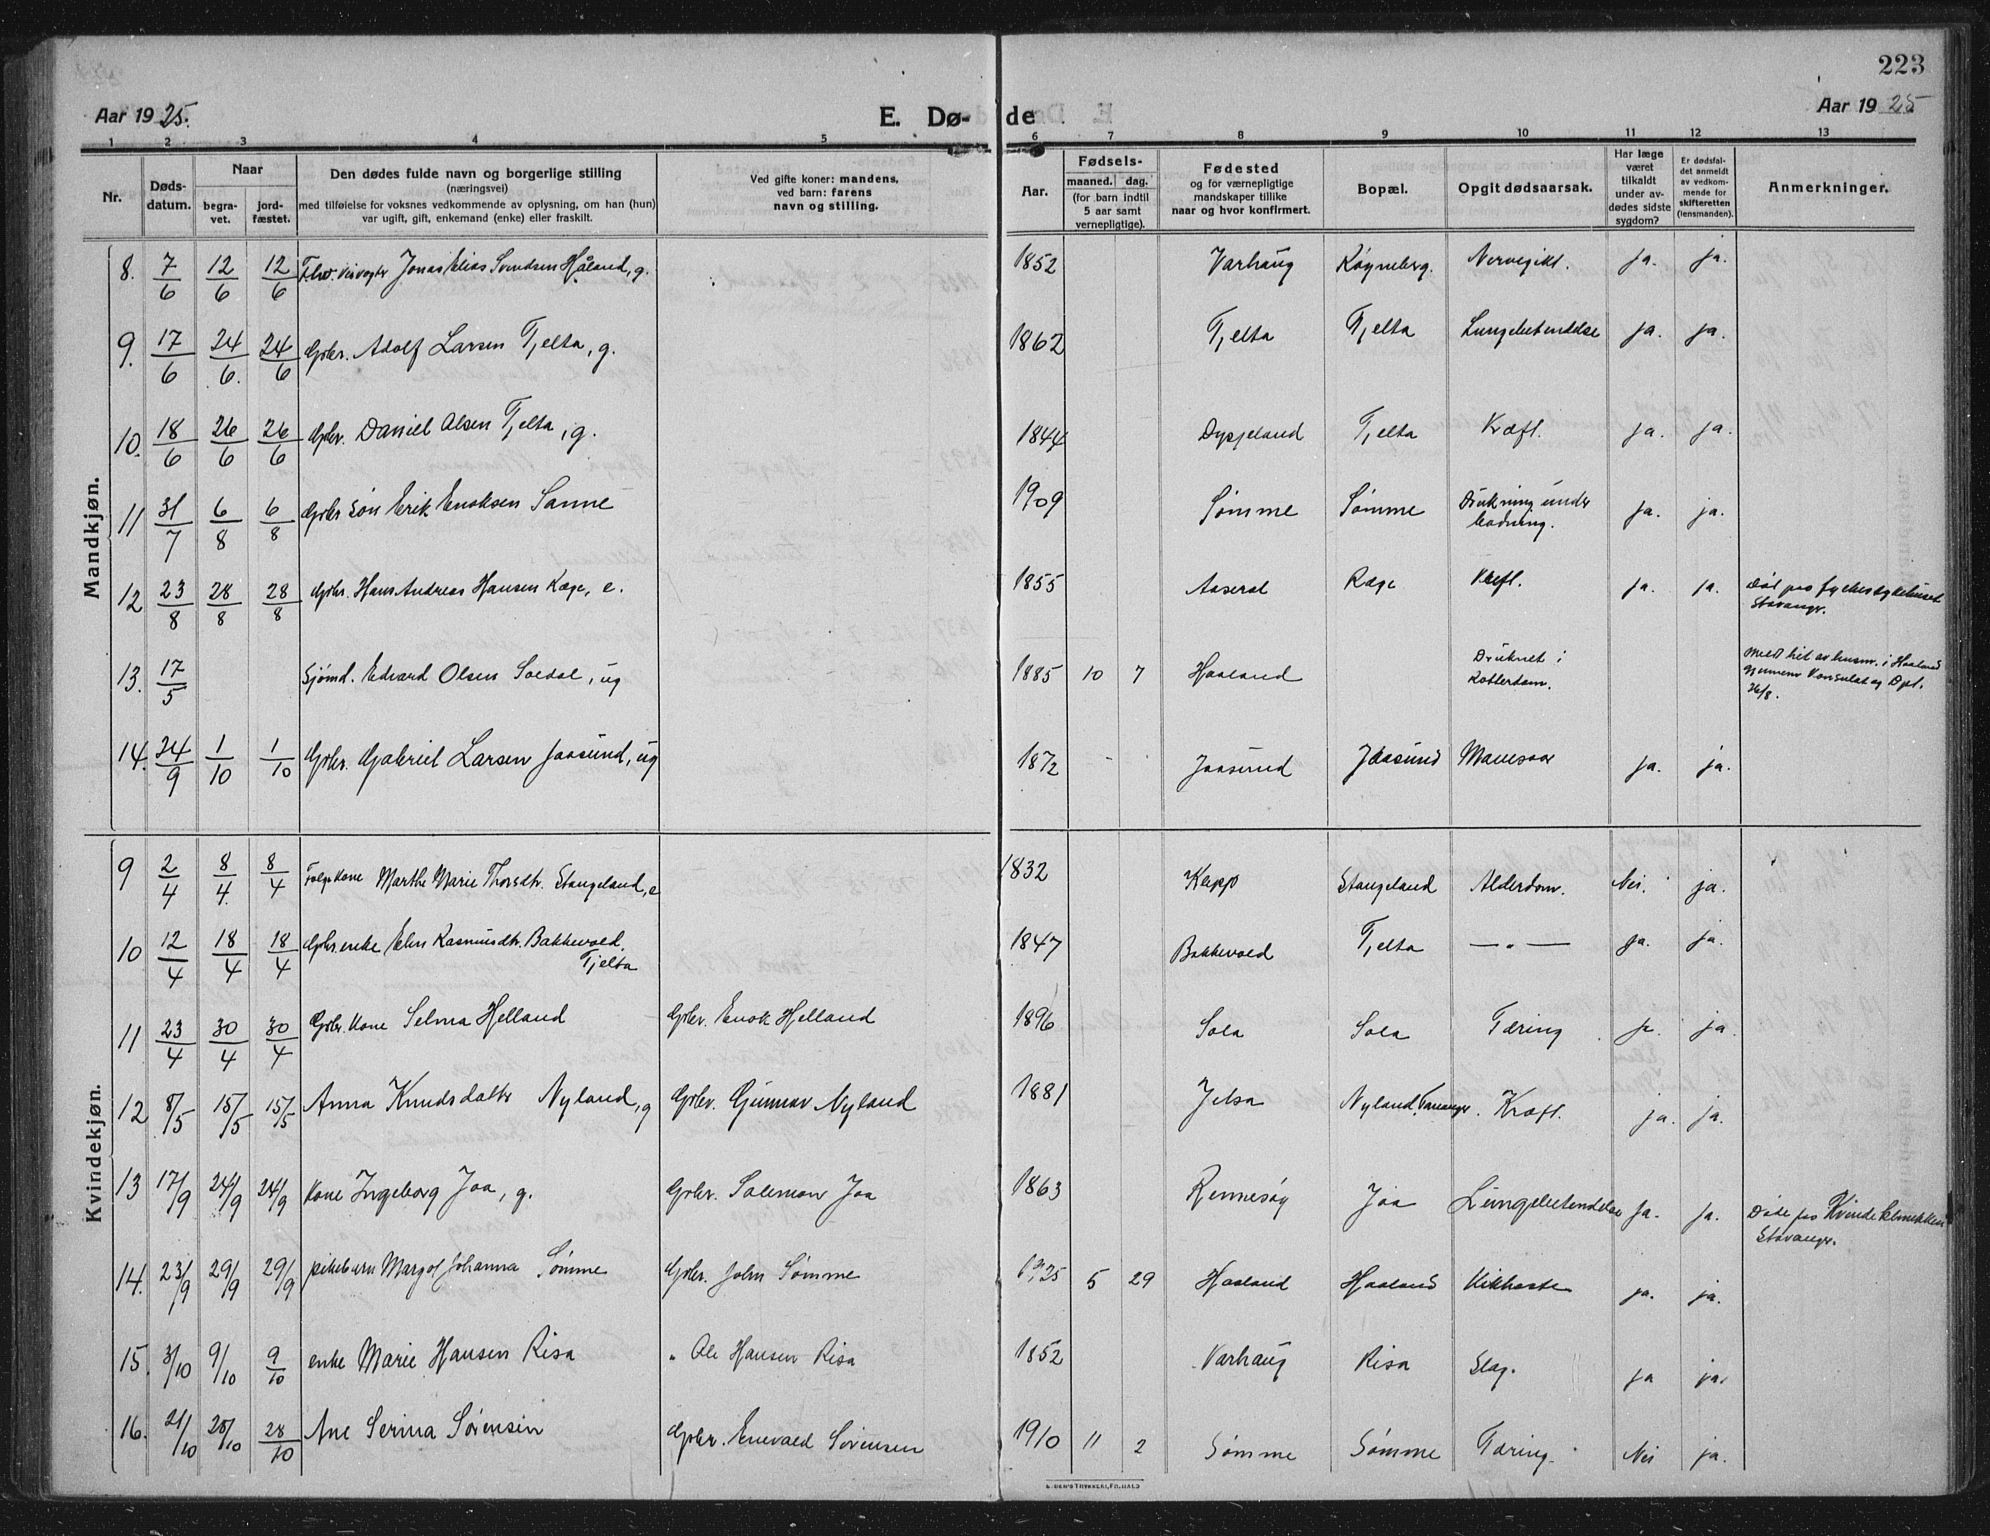 223
Aar 1925.
E. Dø-
de
Aar 1925
1 2 3 4 5 6 7 8 9 10 11 12 13
Nr.
Døds-
datum.
Naar
begra-
vet.
jord-
fæstet.
Den dødes fulde navn og borgerlige stilling
(næringsvei)
med tilføielse for voksnes vedkommende av oplysning, om han (hun)
var ugift, gift, enkemand (enke) eller fraskilt.
Ved gifte koner: mandens,
ved barn: farens
navn og stilling.
Aar.
Fødsels-
maaned. dag.
(for barn indtil
5 aar samt
vernepligtige).
Fødested
og for værnepligtige
mandskaper tillike
naar og hvor konfirmert.
Bopæl.
Opgit dødsaarsak.
Har læge
været
tilkaldt
under av-
dødes sidste
sygdom?
Er dødsfal-
det anmeldt
av vedkom-
mende for
skifteretten
(lensmanden).
Anmerkninger.
Mandkjøn.
8. 7/6 12/6 12/6 Jonas Elias Svendsen Håland, g. 1852 Varhaug Røyneberg. Nervegikt. ja. ja.
9. 17/6 24/6. 24/6 Gbr. Adolf Larsen Tjelta, g. 1862 Tjelta Tjelta Lungebetendelse ja. ja.
10. 18/6 26/6 26/6 Gbr. Daniel Olsen Tjelta, g. 1844 Dysjeland Tjelta Kræft. ja. ja.
11 31/7 6/8 6/8 Gbr søn Erik Enoksen Sømme 1909 Sømme Sømme Drukning under
badning. ja. ja.
12 23/8 28/8 28/8 Gbr. Hans Andreas Hansen Ræge, e. 1855 Aaseral Ræge Kræft. ja. ja. Død paa fylkessykehuset
Stavanger.
13. 17/5 Sjømd. Edvard Olsen Soldal, ug 1885 10 7 Haaland Druknet i
Rotterdam. Meldt hit av lensm. i Haaland
gjennem Konsulat og Dpt.
26/8.
14. 24/9 1/10 1/10 Gbr. Gabriel Larsen Jaasund, ug 1872 Jaasund Jaasund Mavesaar ja. ja.
Kvindekjøn.
9 2/4 8/4. 8/4 Føderkone Marthe Marie Thorsdtr. Stangeland, e 1832 Klepp Stangeland Alderdom. Nei. ja.
10 12/4 18/4 18/4 Gbr enke Elen Rasmusdtr. Bakkevold.
Tjelta 1847 Bakkevold Tjelta — „ — ja. ja.
11 23/4 30/4 30/4 Gbr. kone Selma Helland Gbr. Enok Helland 1896 Sola Sola Tæring ja. ja.
12 8/5 15/5 15/5 Anna Knudsdatter Nyland, g Gbr. Gunnar Nyland 1881 Jelsa Nyland, Tananger. Kræft. ja. ja.
13 17/9 24/9 24/9 Kone Ingeborg Joa, g. Gbr. Salemon Joa 1863 Rennesøy Joa Lungebetendelse ja. ja. Døde paa Kvindeklinikken
Stavanger.
14. 23/9 29/9 29/9 pikebarn Margot Johanna Sømme Gbr. John Sømme 1925 5 29 Haaland Haaland Kikhoste ja. ja.
15. 3/10 9/10 9/10 enke Marie Hansen Risa „ Ole Hansen Risa 1852 Varhaug Risa Slag. ja ja.
16. 21/10 28/10 28/10 Ane Serina Sørensen Gbr. Enevald Sørensen 1910 11 2 Sømme Sømme Tæring. Nei ja.